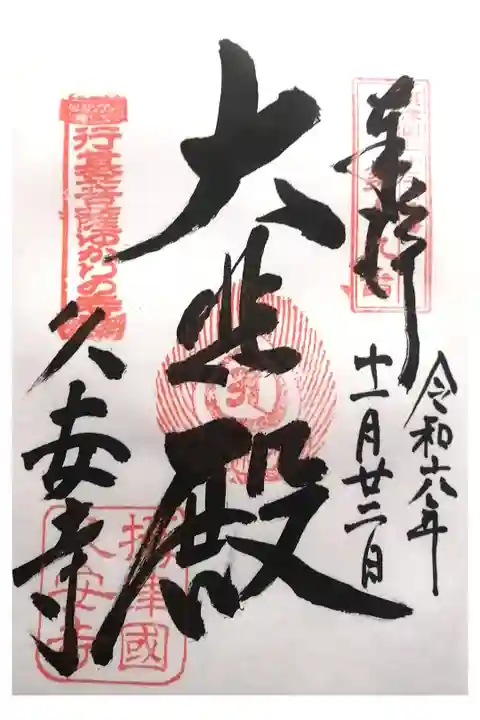 奉拝
令和六年
十一月廿二日
大悲殿
行基菩薩ゆかりの
久安寺
摂津國
久安寺